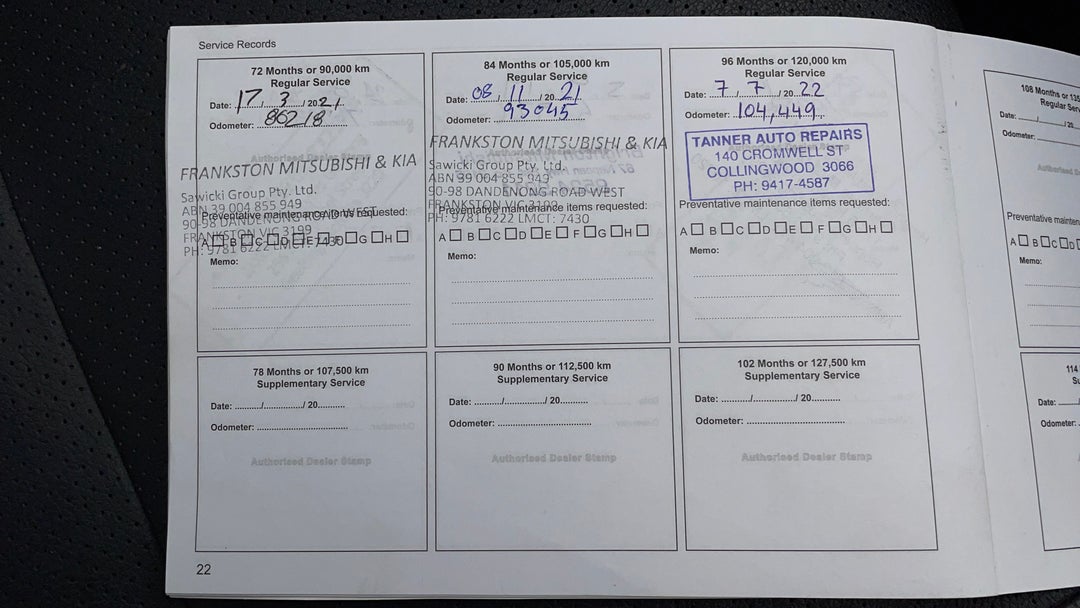 Service Records
72 Months or 90,000 km
Regular Service
Date: 17 / 3 / 2021
Odometer: 86218
FRANKSTON MITSUBISHI & KIA
Sawicki Group Pty. Ltd.
ABN 39 004 855 949
90-98 DANDENONG ROAD WEST
FRANKSTON VIC 3199
PH: 9781 6222 LMCT: 7430
Preventative maintenance items requested:
A B C D E F G H
Memo:
84 Months or 105,000 km
Regular Service
Date: 08 / 11 / 2021
Odometer: 93045
FRANKSTON MITSUBISHI & KIA
Sawicki Group Pty. Ltd.
ABN 39 004 855 949
90-98 DANDENONG ROAD WEST
FRANKSTON VIC 3199
PH: 9781 6222 LMCT: 7430
Preventative maintenance items requested:
A B C D E F G H
Memo:
96 Months or 120,000 km
Regular Service
Date: 7 / 7 / 2022
Odometer: 104,449
TANNER AUTO REPAIRS
140 CROMWELL ST
COLLINGWOOD 3066
PH: 9417-4587
Preventative maintenance items requested:
A B C D E F G H
Memo:
78 Months or 107,500 km
Supplementary Service
Date: ........../............../ 20..........
Odometer: ..............................
Authorised Dealer Stamp
90 Months or 112,500 km
Supplementary Service
Date: ........../............../ 20..........
Odometer: ..............................
Authorised Dealer Stamp
102 Months or 127,500 km
Supplementary Service
Date: ........../............../ 20..........
Odometer: ..............................
Authorised Dealer Stamp
22
108 Months or
Regular
Date:
Odometer:
Authorised
Preventative
A B C D
Memo:
114
Date:
Odometer: